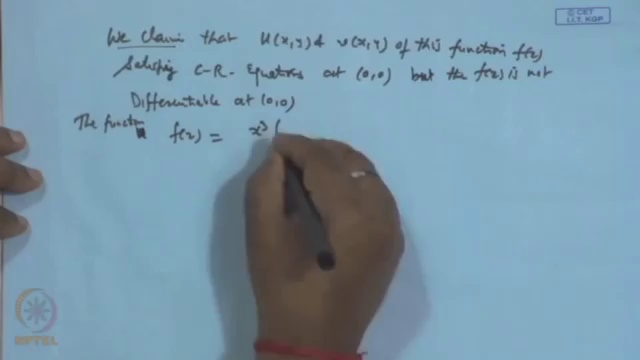 © CET
I.I.T. KGP
We Claim that U(x,y) & v(x,y) of this function f(z)
Satisfies C-R. Equations at (0,0) but the f(z) is not
Differentiable at (0,0)
The function f(z) = x³ (
NPTEL